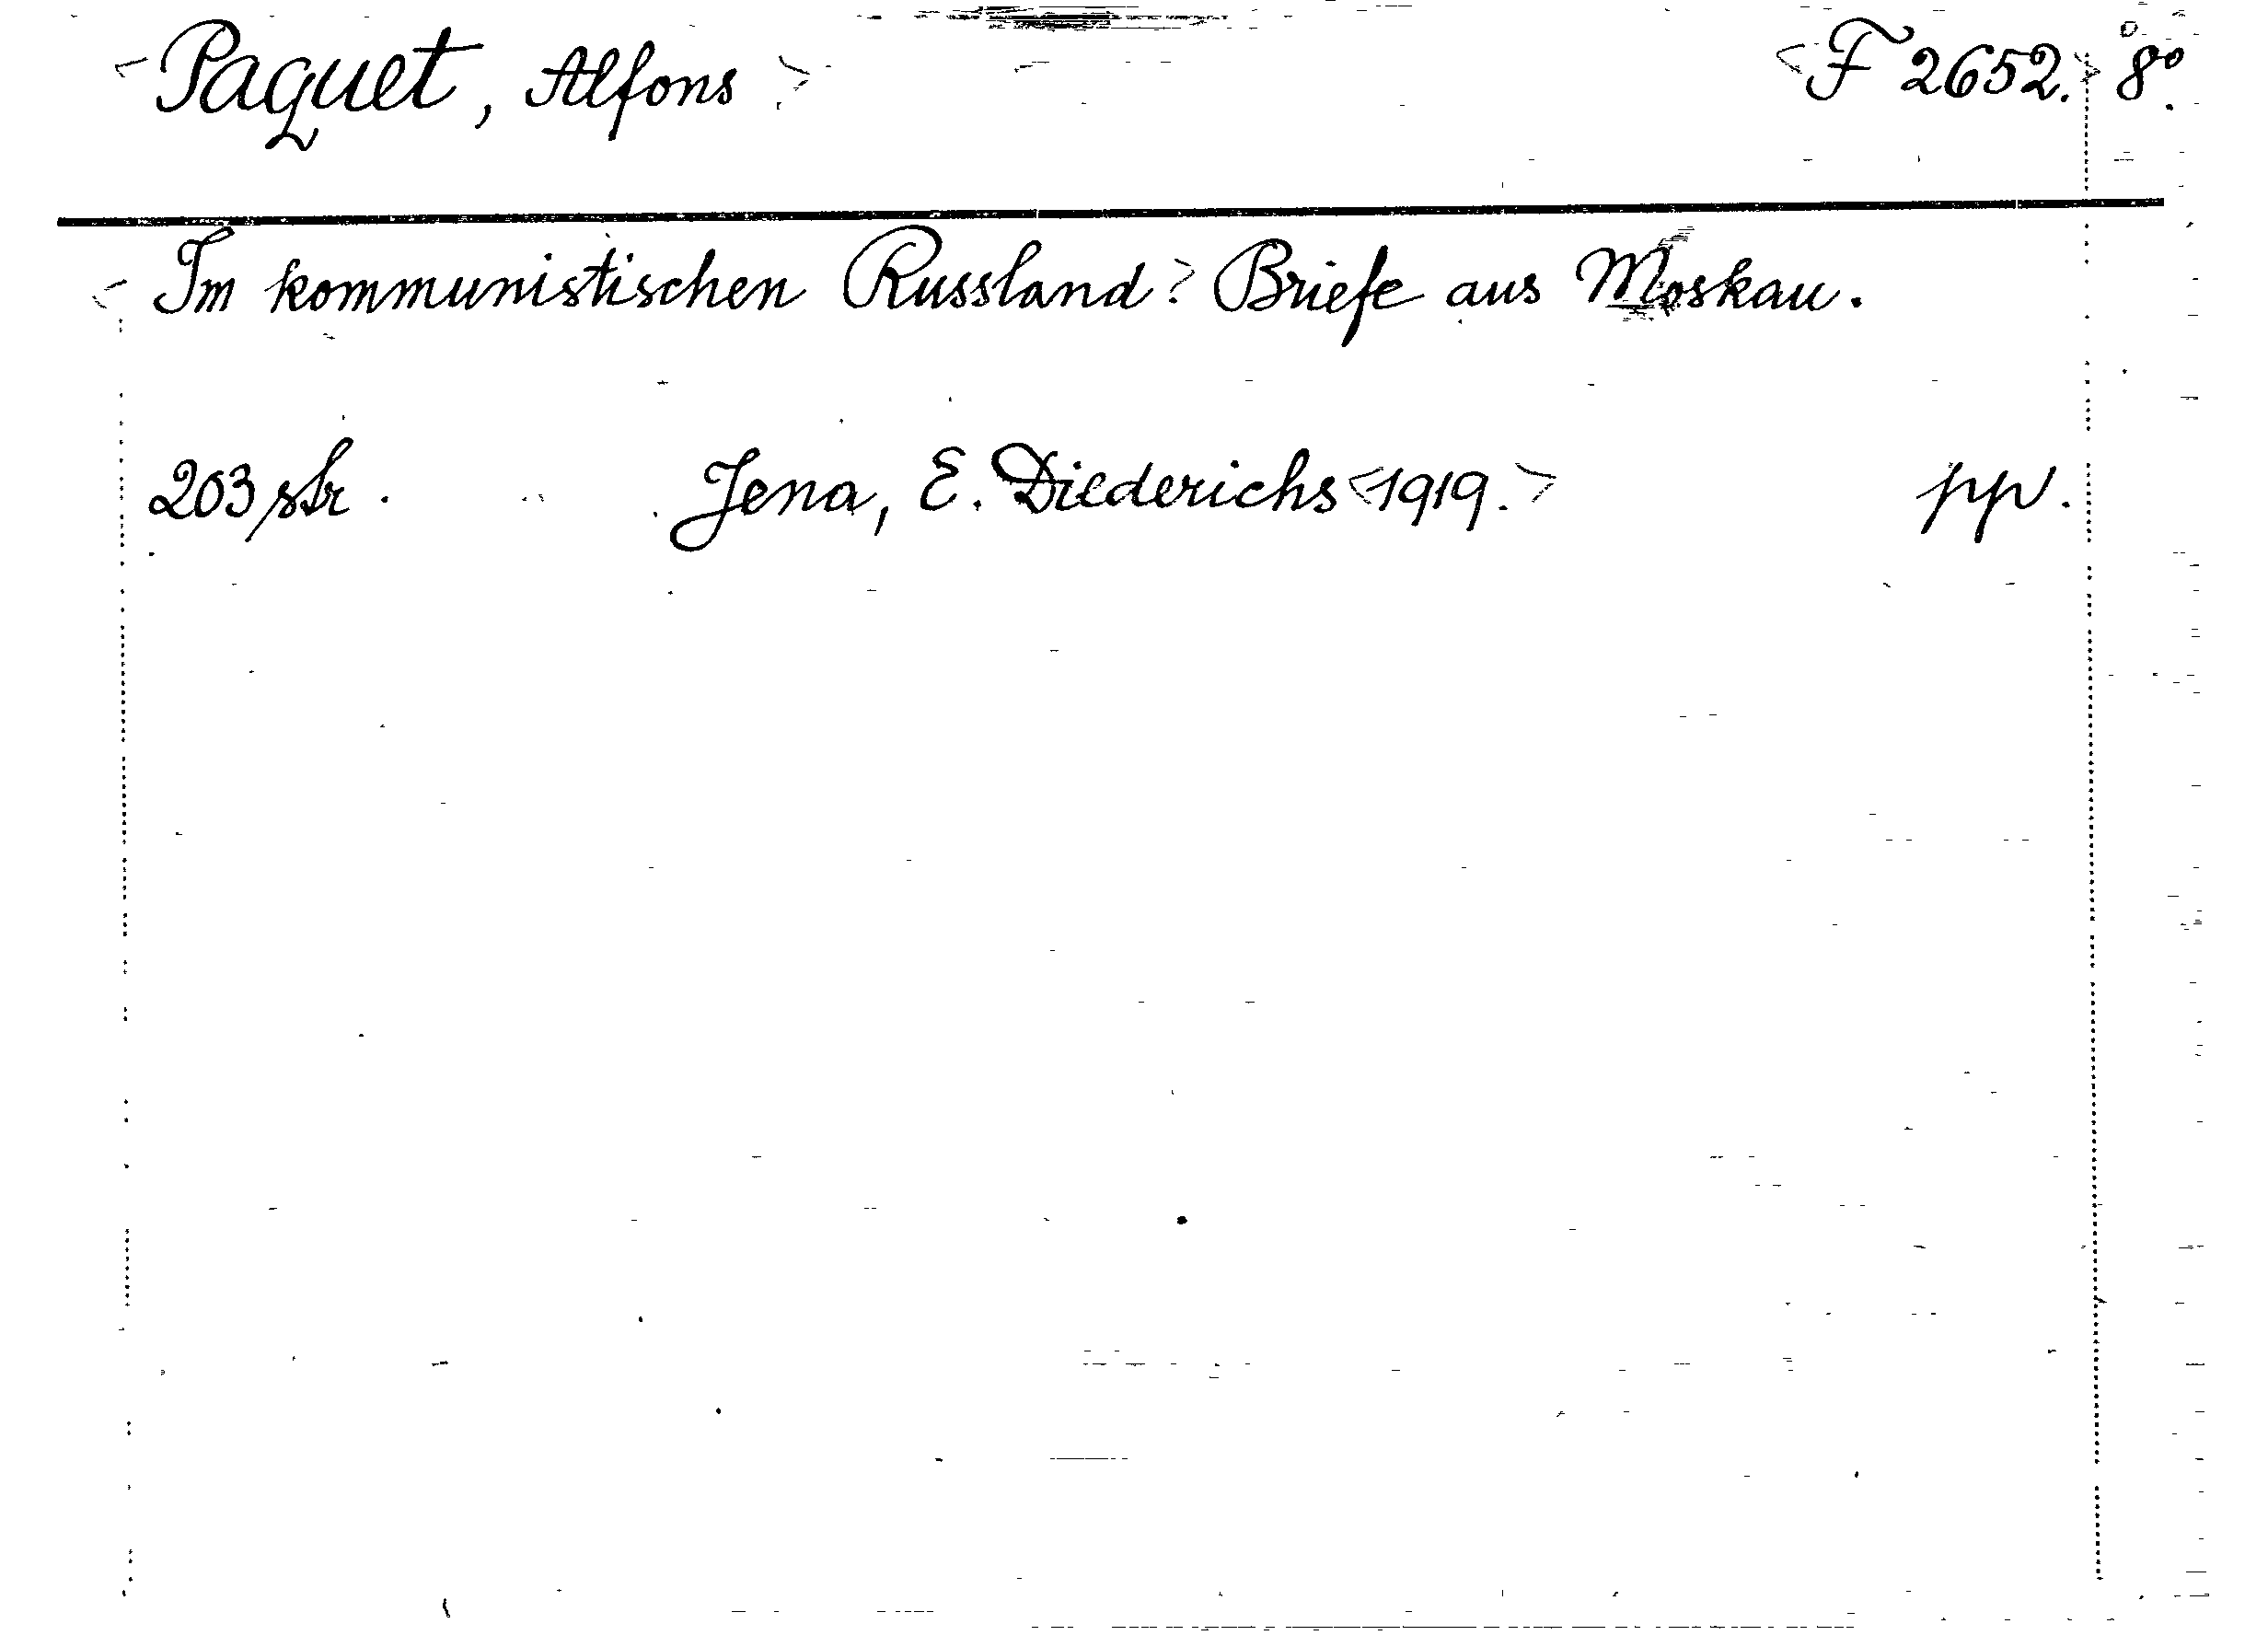 <Paquet, Alfons> <F 2652.> 8°.
<Im kommunistischen Russland> Briefe aus Moskau.
203 str. Jena, E. Diederichs <1919.> pp.